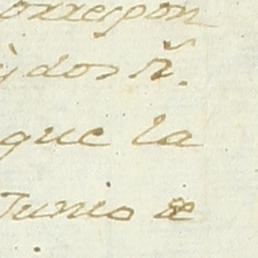 correspon
y dos r.^s
que la
Junio de